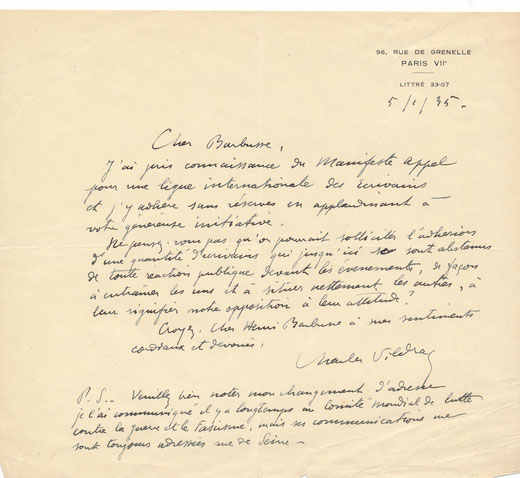 96, RUE DE GRENELLE
PARIS VIIᵉ
LITTRÉ 33-07
5/1/35.
Cher Barbusse,
J'ai pris connaissance du Manifeste Appel
pour une ligue internationale des Ecrivains
et j'y adhère sans réserves en applaudissant à
votre généreuse initiative.
Ne pensez-vous pas qu'on pourrait solliciter l'adhésion
d'une quantité d'écrivains qui jusqu'ici se sont abstenus
de toute réaction publique devant les évenements, de façon
à entraîner les uns et à situer nettement les autres, à
leur signifier notre opposition à leur attitude?
Croyez, cher Henri Barbusse à mes sentiments
cordiaux et dévoués,
Charles Vildrac
P.S.- Veuillez bien noter mon changement d'adresse
je l'ai communiqué il y a longtemps au Comité mondial de lutte
contre la guerre et le fascisme, mais ses communications me
sont toujours adressées rue de Seine -